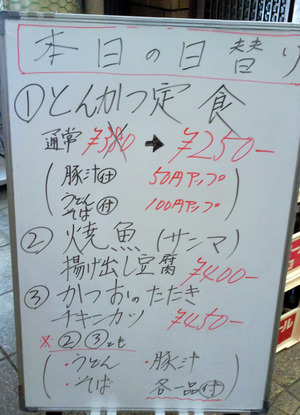 本日の日替り
①とんかつ定食
通常 ¥380 → ¥250-
(豚汁付 50円アップ
うどん そば 付 100円アップ)
②焼魚(サンマ)
揚げ出し豆腐 ¥400-
③かつおのたたき
チキンカツ ¥450-
※②③とも
(・うどん ・豚汁
・そば 各一品付)